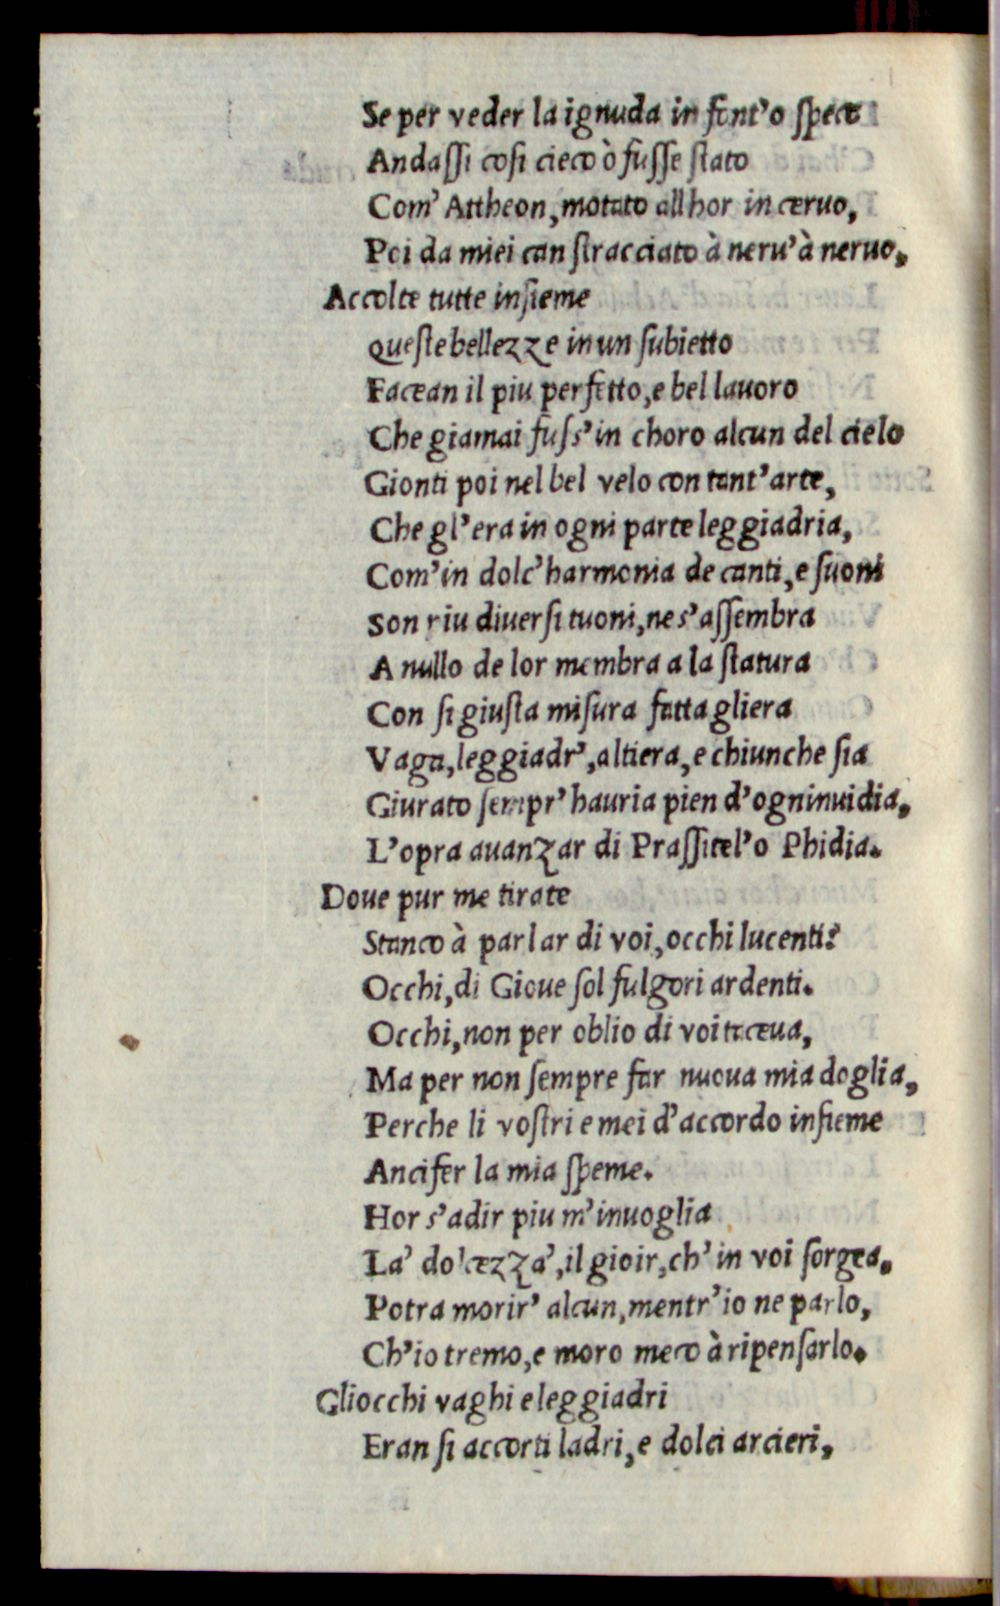 Se per veder la ignuda in font'o speco
Andassi cosi cieco ò fusse stato
Com' Attheon, motato all hor in ceruo,
Poi da miei can stracciato à neru' à neruo.
Accolte tutte insieme
Queste bellezze in un subietto
Facean il piu perfetto, e bel lauoro
Che giamai fuss' in choro alcun del cielo
Gionti poi nel bel velo con tant' arte,
Che gl' era in ogni parte leggiadria,
Com' in dolc' harmonia de canti, e suoni
Son piu diuersi tuoni, ne s' assembra
A nullo de lor membra a la statura
Con si giusta misura fatta gliera
Vaga, leggiadr', altiera, e chiunche sia
Giurato sempr' hauria pien d' ogninuidia,
L' opra auanzar di Prassitel' o Phidia.
Doue pur me tirate
Stanco à parlar di voi, occhi lucenti?
Occhi, di Gioue sol fulgori ardenti.
Occhi, non per oblio di voi taceua,
Ma per non sempre far nuoua mia doglia,
Perche li vostri e mei d' accordo insieme
Anciser la mia speme.
Hor s' adir piu m' inuoglia
La' dolcezza', il gioir, ch' in voi sorgea.
Potra morir' alcun, mentr' io ne parlo,
Ch' io tremo, e moro meco à ripensarlo.
Gliocchi vaghi e leggiadri
Eran si accorti ladri, e dolci arcieri,